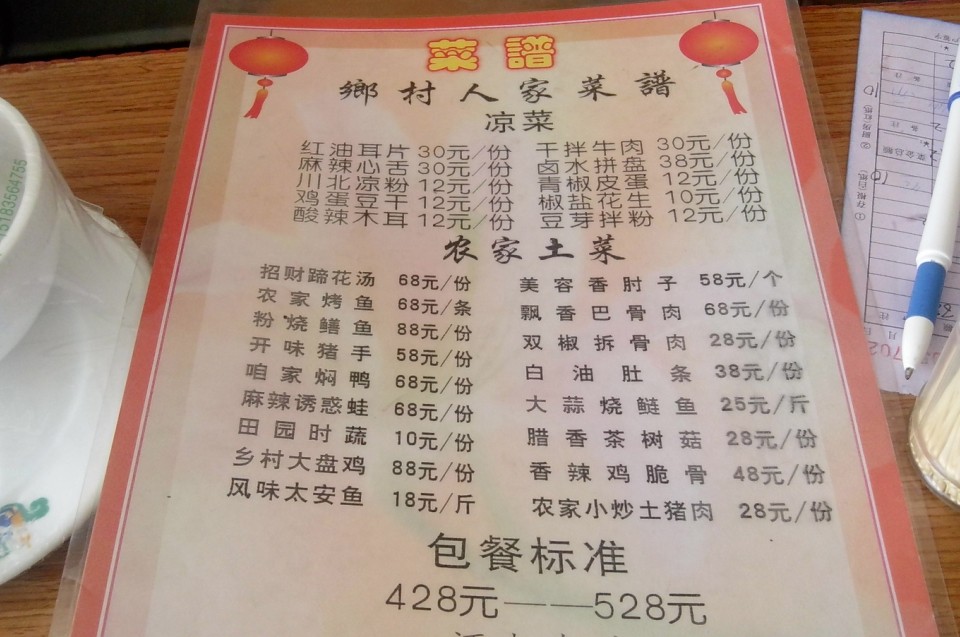 菜譜
鄉村人家菜譜
凉菜
红油耳片 30元/份 干拌牛肉 30元/份
麻辣心舌 30元/份 卤水拼盘 38元/份
川北凉粉 12元/份 青椒皮蛋 12元/份
鸡蛋豆干 12元/份 椒盐花生 10元/份
酸辣木耳 12元/份 豆芽拌粉 12元/份
农家土菜
招财蹄花汤 68元/份 美容香肘子 58元/个
农家烤鱼 68元/条 飘香巴骨肉 68元/份
粉烧鳝鱼 88元/份 双椒拆骨肉 28元/份
开味猪手 58元/份 白油肚条 38元/份
咱家焖鸭 68元/份 大蒜烧鲢鱼 25元/斤
麻辣诱惑蛙 68元/份 腊香茶树菇 28元/份
田园时蔬 10元/份 香辣鸡脆骨 48元/份
乡村大盘鸡 88元/份 农家小炒土猪肉 28元/份
风味太安鱼 18元/斤
包餐标准
428元——528元